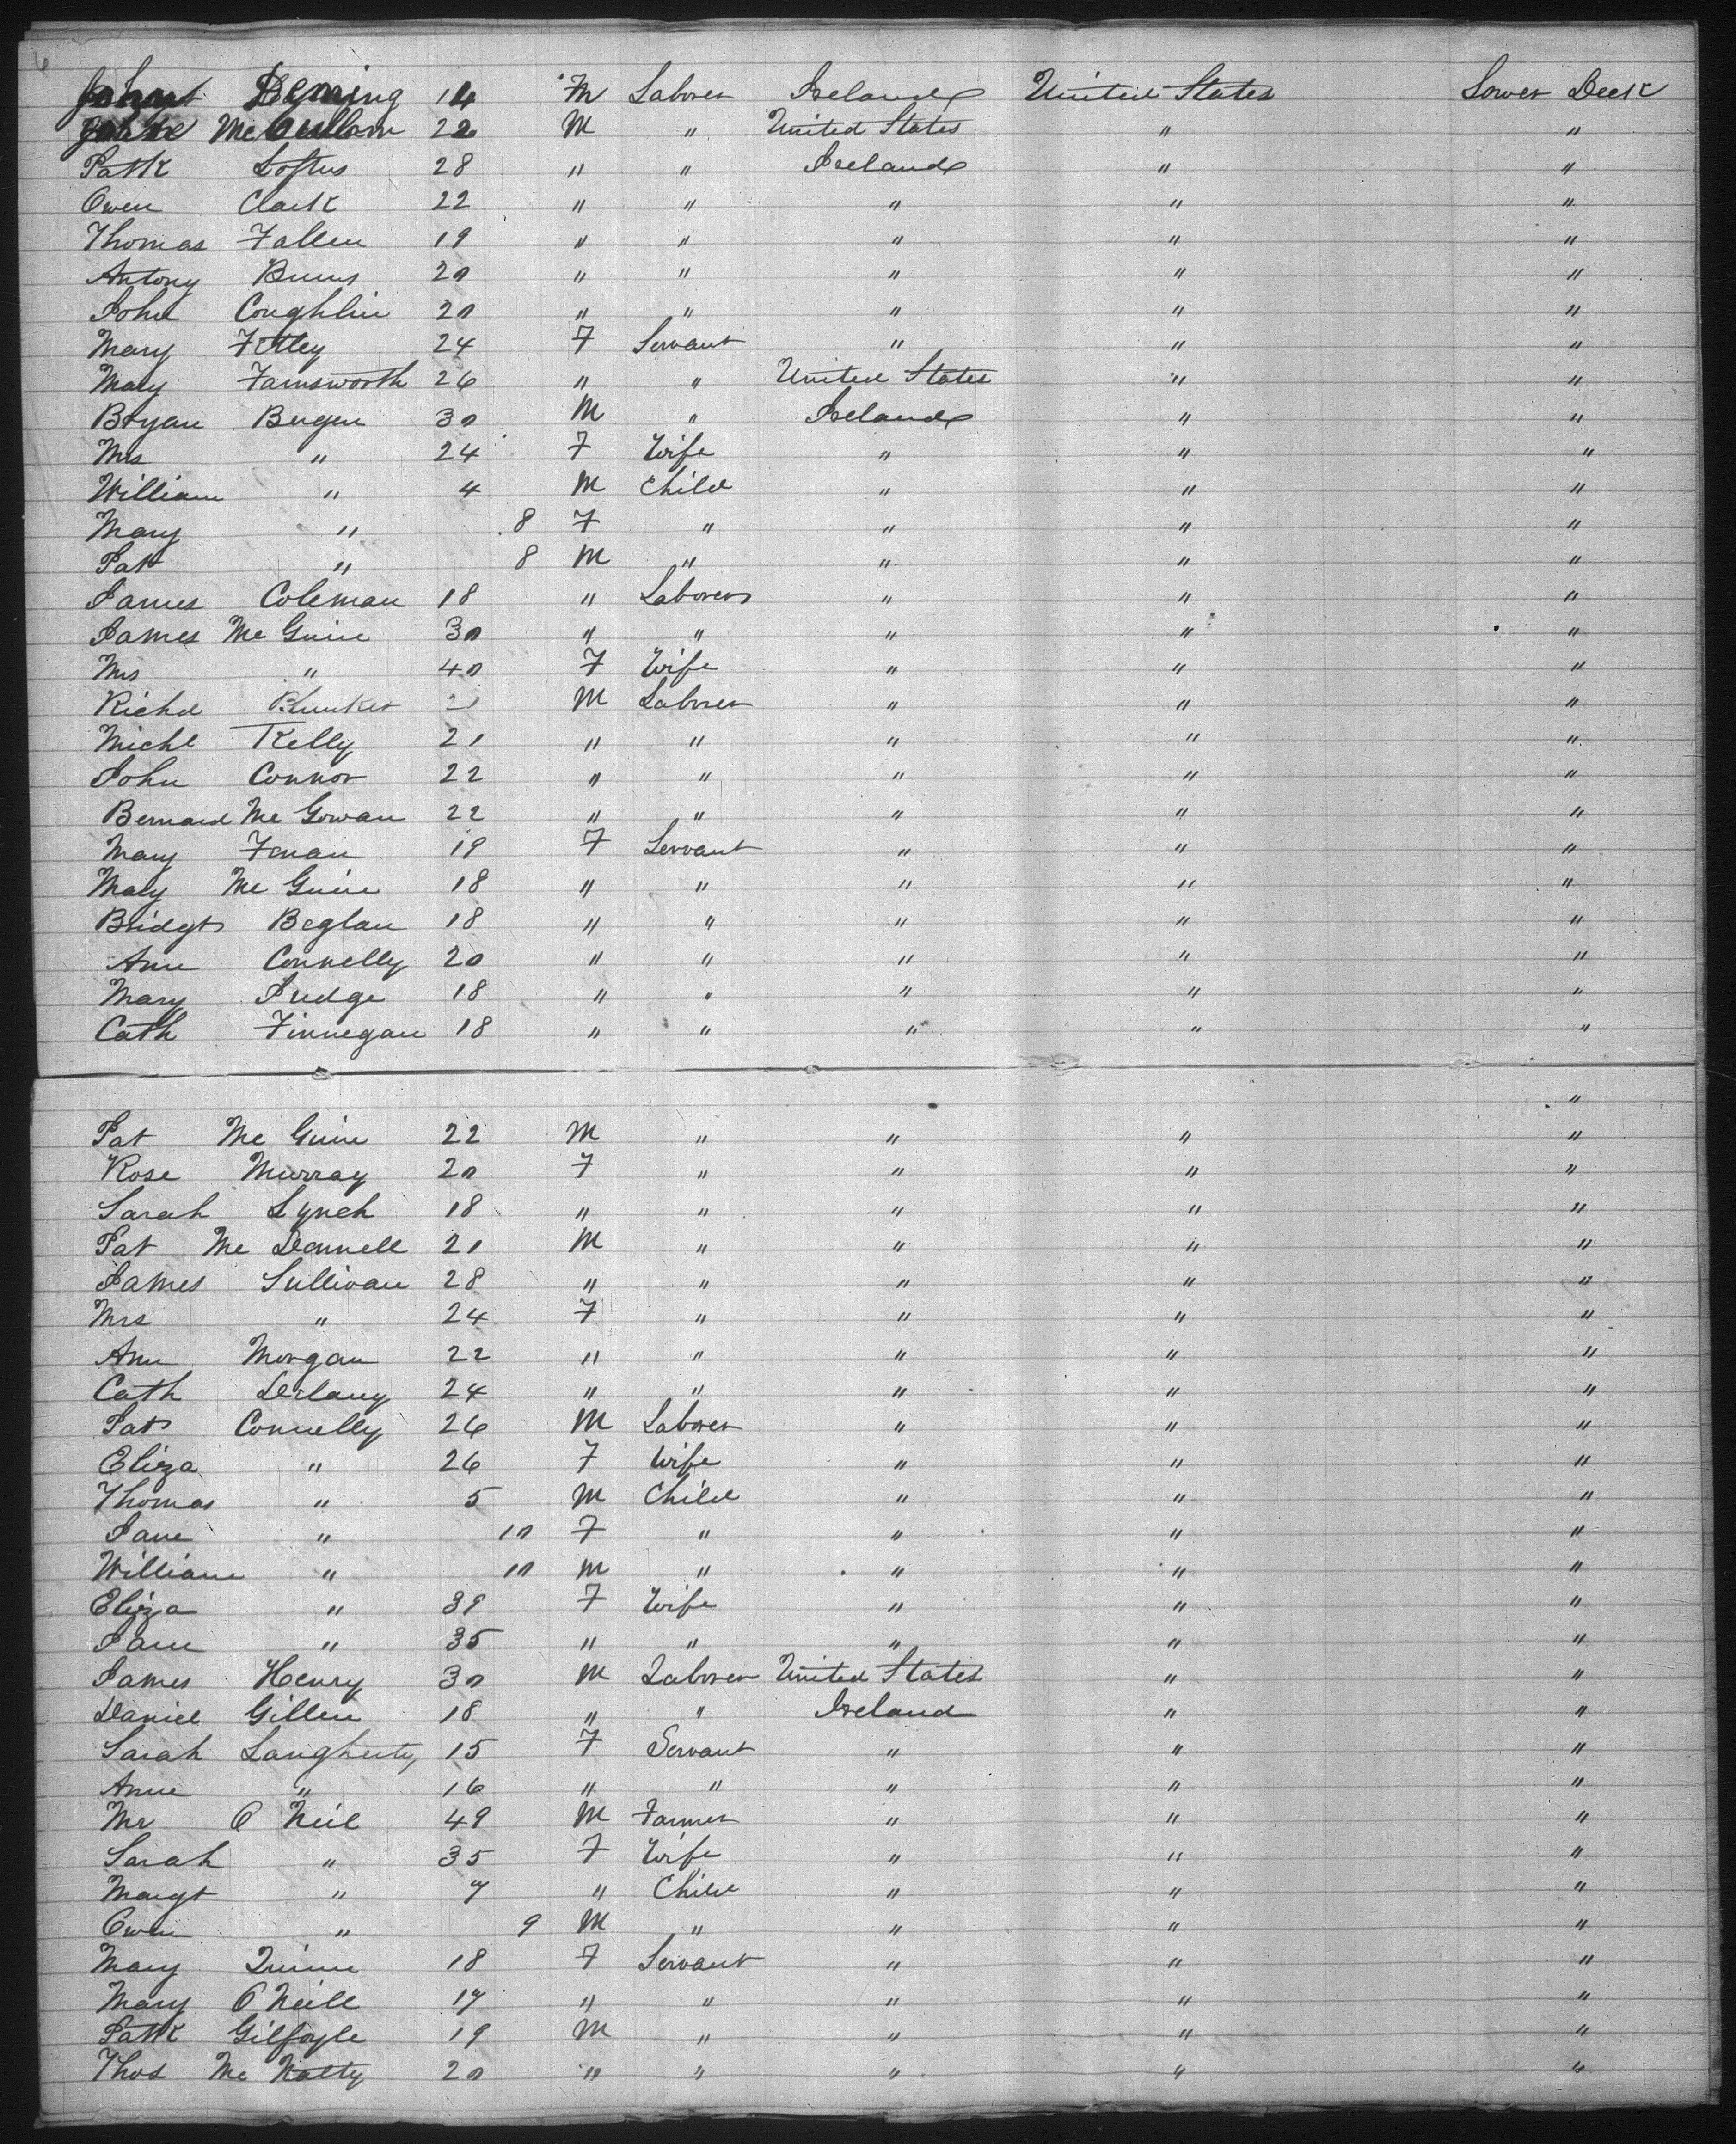 6
John Deming 14 M Laborer Ireland United States Lower Deck
McCullom 22 M " United States " "
Patk Loftus 28 " " Ireland " "
Owen Clark 22 " " " " "
Thomas Fallen 19 " " " " "
Antony Burns 20 " " " " "
John Coughlin 20 " " " " "
Mary 24 F Servant " " "
Mary Farnsworth 26 " " United States " "
Bryan Bergen 30 M " Ireland " "
Mrs " 24 F Wife " " "
William " 4 M Child " " "
Mary " 8 F " " " "
Pat " 8 M " " " "
James Coleman 18 " Laborer " " "
James McGuire 30 " " " " "
Mrs " 40 F Wife " " "
Richd 21 M Laborer " " "
Michl Kelly 21 " " " " "
John Connor 22 " " " " "
Bernard McGowan 22 " " " " "
Mary 19 F Servant " " "
Mary McGuire 18 " " " " "
Bridgt Beglan 18 " " " " "
Ann Connelly 20 " " " " "
Mary Judge 18 " " " " "
Cath Finnegan 18 " " " " "
"
Pat McGuire 22 M " " " "
Rose Murray 20 F " " " "
Sarah Lynch 18 " " " " "
Pat McDonnell 21 M " " " "
James Sullivan 28 " " " " "
Mrs " 24 F " " " "
Ann Morgan 22 " " " " "
Cath Delany 24 " " " " "
Pat Connelly 26 M Laborer " " "
Eliza " 26 F Wife " " "
Thomas " 5 M Child " " "
Jane " 10 F " " " "
William " 10 M " " " "
Eliza " 39 F Wife " " "
Jane " 35 " " " " "
James Henry 30 M Laborer United States " "
Daniel Gillen 18 " " Ireland " "
Sarah Laugherty 15 F Servant " " "
Anne " 16 " " " " "
Mr O Neil 49 M Farmer " " "
Sarah " 35 F Wife " " "
Margt " 7 " Child " " "
Owen " 9 M " " " "
Mary Quinn 18 F Servant " " "
Mary O Neill 17 " " " " "
Patk Gilfoyle 19 M " " " "
Thos McNatty 20 " " " " "